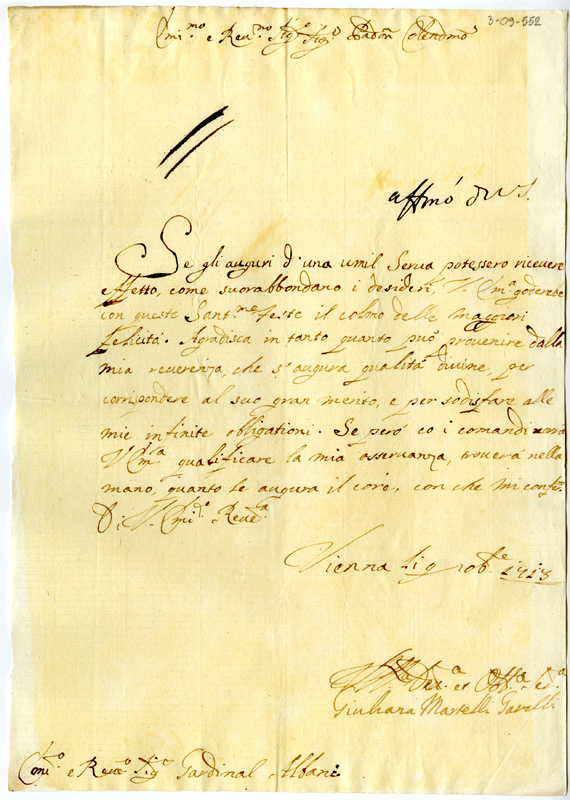 3-09-552
Emi.mo e Reu.mo Sig.e Sig.e Padõn Colendmo
affmo
Se gli auguri d'una umil Serua potessero riceuere
effetto, come suorabbondano i desideri, V. Em.a goderebe
con queste Sant.me feste il colmo delle magiori
felicità. Agradisca in tanto quanto può prouenire dalla
mia reuerenza, che s'augura qualità diuine, per
corrispondere al suo gran merito, e per sodisfare alle
mie infinite obligationi. Se però co i comandi
V. Em.a qualificare la mia osseruanza, trouerà nella
mano, quanto le augura il core, con che mi
Di V. Em.a Reue.a
Vienna li 9 10b.e 1713
Deu.a et Obb.a
Giuliana Martelli
Emi.o e Reue.o Sig.o Cardinal Albani